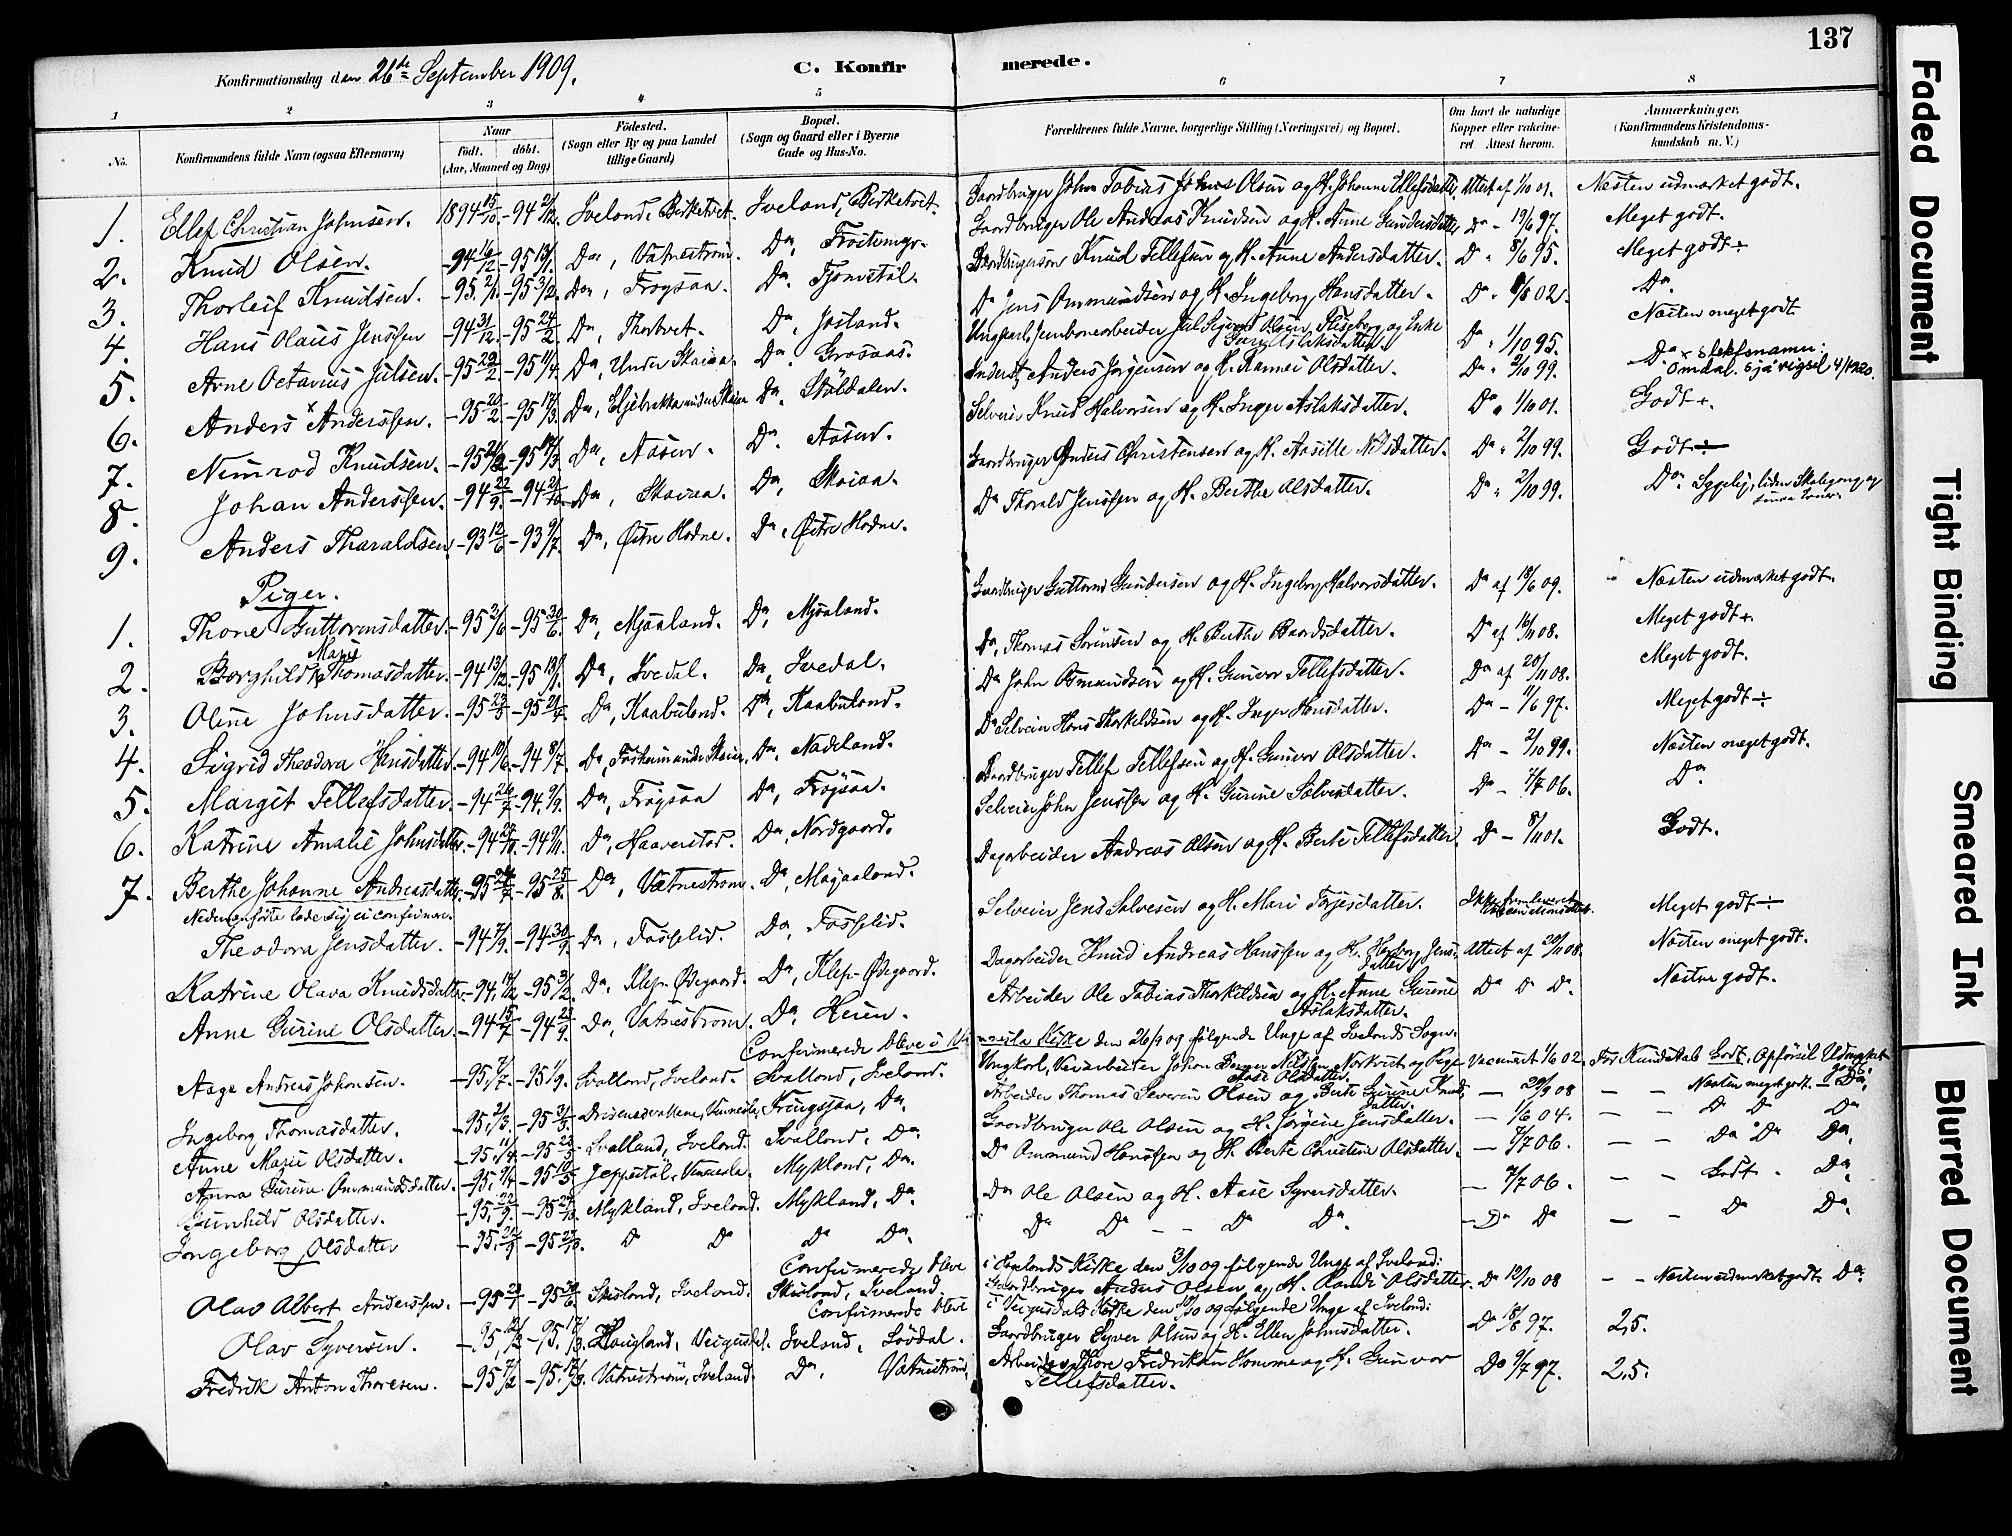 137
Konfirmationsdag den 26de September 1909.
C. Konfirmerede.
1 2 3 4 5 6 7 8
No. Konfirmandens fulde Navn (ogsaa Efternavn) Naar født. døbt. (Aar, Maaned og Dag) Fødested. (Sogn eller By og paa Landet tillige Gaard) Bopæl. (Sogn og Gaard eller i Byerne Gade og Hus-No. Forældrenes fulde Navne, borgerlige Stilling (Næringsvei) og Bopæl. Om havt de naturlige Kopper eller vakcineret. Attest herom. Anmærkninger. (Konfirmandens Kristendomskundskab m. V.)
1. Ellef Christian Johnsen. 1894 15/10. -94 2/12. Iveland, Birketvet. Iveland, Birketvet. Gaardbruger John Tobias Olsen og H. Johanne Ellefsdatter, Attest af 1/10 01. Næsten udmærket godt.
2. Knud Olsen. -94 16/12. -95 13/1. Da, Vatnestrøm. Da, Gaardbruger Ole Andreas Knudsen og H. Anne Gundersdatter, Da - 19/6 97. Meget godt.
3. Thorleif Knudsen. -95. 2/1. -95 3/2. Da, Frøysaa. Da. Gaardbrugersøn Knud Tellefsen og H. Anne Andersdatter. Da - 8/6 95. Meget godt ÷
4. Hans Olaus Jenssen -94 31/12. -95 24/2. Da, Thortvet. Da, Jøsland. Da Jens Ommundsen og H. Ingeborg Hansdatter. Da - 02. Da.
5. Arne Octavius Julsen. -95 -95 11/4. Da, Unter Skaiaa. Da Grosaas. Ungkarl, Jernbanearbeider Jul Sigurd Olsen, og Enke Aslaksdatter. Da - 1/10 95. Næsten meget godt
6. Anders x Anderssen. -95 20/2. -95 17/3. Da, under Skaiaa Da. Skøldalen. Inderst, Anders Jørgensen og H. Olsdatter. Da - 2/10 99. Da x Slektsnamn: Omdal. Sjå 4/1920.
7. Nimrod Knudsen. -95 -95 17/3. Da, Aasen. Da. Aasen. Selveier Knud Halvorsen og H. Inger Aslaksdatter. Da 1/10 01. Godt +.
8. Johan Anderssen. -94 22/9. -94 21/10. Da, Skaiaa. Da, Skaiaa. Gaardbruger Anders Christensen og H. Aasille Nilsdatter. Da - 2/10 99. Godt ÷
9. Anders Tharaldsen. -93 12/6 -93 9/7. Da, Østre Hodne. Da, Østre Hodne. Da Thorald Jenssen og H. Berthe Olsdatter. Da - 2/10 99. Da. liden Skolegang og
Piger.
1. Thone Guttormsdatter. -95 3/6 -95 30/6. Da, Mjaaland. Da, Mjaaland. Gaardbruger Guttorm Gundersen og H. Ingeborg Halvorsdatter. Da af 18/6 09. Næsten udmærket godt.
2. Borghild Marie Thomasdatter. -94 13/12. -95 13/1. Da, Ivedal. Da, Ivedal. Da, Thomas Sørensen og H. Berthe Baardsdatter. Da af 16/11 08. Meget godt +.
3. Oline Johnsdatter. -95 23/3 -95 21/4. Da, Kaabuland. Da, Kaabuland. Da John Osmundsen og H. Gunvor Tellefsdatter. Da af 20/11 08. Meget godt.
4. Sigrid Theodora Hansdatter. -94 10/6. -94 8/7. Da, under Skaiaa, Da, Nadeland. Da Selveier Hans Thorkildsen og H. Inger Hansdatter. Da - 11/6 97. Meget godt ÷
5. Margit Tellefsdatter. -94 26/7 -94. 2/9. Da, Frøysaa Da, Frøysaa. Gaardbruger Tellef Tellefsen og H. Gunvor Olsdatter. Da - 2/10 99. Næsten meget godt.
6. Katrine Amalie Johnsdatter. -94 -94 9/11. Da, Haaverstad. Da, Nordgaard. Selveier John Jenssen og H. Gurine Salvesdatter. Da - 7/7 06. Da
7. Berthe Johanne Andreasdatter. -95 24/7 -95 25/8. Da, Vatnestrøm. Da, Mojaaland. Dagarbeider Andreas Olsen og H. Berte Tellefsdatter. Da - 8/11 01. Godt.
Nedenanførte lode sig ei confirmere.
Theodora Jensdatter. -94 7/9. -94 30/9. Da, Fosselid. Da, Fosselid. Selveier Jens Salvesen og H. Mari Terjesdatter. Ikke fremleveret Meget godt ÷
Katrine Olava Knudsdatter. -94, 14/12 -95 3/2. Da, Klep-Ødegaard. Da, Klep-Ødegaard. Dagarbeider Knud Andreas Hanssen og H. Herborg Jensdatter Attest af 20/11 08. Næsten meget godt.
Anne Gurine Olsdatter. -94 15/7 -94 23/9. Da, Vatnestrøm. Da, Heien. Arbeider Ole Tobias Thorkildsen og H. Anne Gurine Aslaksdatter. Da Da Da. Næsten godt.
Confirmerede bleve i Vennesla Kirke den 26/9 09 følgende Unge af Ivelands Sogn.
Aage Andreas Johansen. -95, 7/7. -95 1/9. Svalland, Iveland. Svalland, Iveland. Ungkarl, Johan Nilsen, og Pige Aase Olsdatter. Vaccineret 1/6 02. For Kundskab Godt. Opførsel Udmærket godt.
Ingeborg Thomasdatter. -95, 2/3. -95 3/3. Vennesla, Kringsjaa, Da. Arbeider Thomas Severin Olsen og Berte Gurine Knudsdatter. - 29/9 08 - - Næsten meget godt. - Da.
Anne Marie Olsdatter. -95, 11/4 -95 23/5 Svalland, Iveland. Svalland, Da. Gaardbruger Ole Olsen og H. Jørgine Jensdatter. - 1/6 04. - - Da Da Da
Anna Gurine Ommundsdatter. -95, 9/4 -95 19/5 Jeppestøl, Vennesla. Mykland, Da. Da Ommund Hanssen og H. Berte Christine Olsdatter. - 7/7 06. - - Da Da Da.
Gunhild Olsdatter. -95, 22/9. -95 27/10. Mykland, Iveland. Mykland, Da. Da Ole Olsen og H. Aase Syversdatter. - 7/7 06. - - Godt. Da.
Ingeborg Olsdatter -95, 22/9 -95 27/10. Da Da Da Da. Da Da - - Da Da. - Da Da - - Da Da.
Confirmerede bleve i Kirke den 3/10 09 følgende Unge af Iveland:
Olav Albert Anderssen. -95 -95 Skisland, Iveland. Skisland, Iveland. Gaardbruger Anders Olsen og H. Randi Olsdatter. Da 12/10 08 - - Næsten udmærket godt. Da.
Confirmerede bleve i Veigusdals Kirke den 10/10 09 følgende Unge af Iveland:
Olav Syversen. -95, -95, 17/3. Haugland, Veigusdal. Iveland, Løvdal. Gaardbruger Syver Olsen og H. Ellen Johnsdatter. Da 18/6 97. 2,5.
Fredrik Anton Thoresen. -95 7/2 -95. Vatnestrøm, Iveland. Da. Vatnestrøm, Arbeider Thore Fredriksen Homme og H. Gunvor Tellefsdatter. Da 9/7 97. 2,5.
Faded Document
Tight Binding
Smeared Ink
Blurred Document